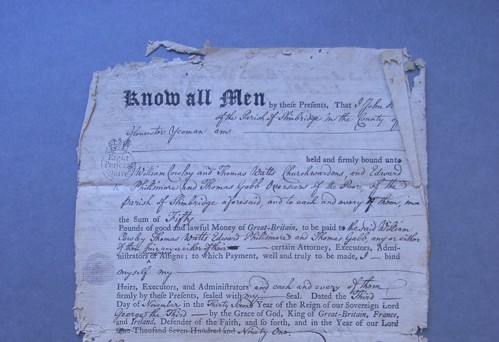 Know all Men by these Presents, That I John
of the Parish of Slimbridge in the County of
Gloucester Yeoman am
Eight
Pence
held and firmly bound unto
William Cowley and Thomas Watts Churchwardens, and Edward
Phillimore and Thomas Gabb Overseers of the Poor, of the
Parish of Slimbridge aforesaid, and to each and every of them, in
the Sum of Fifty
Pounds of good and lawful Money of Great-Britain, to be paid to the said William
Cowley Thomas Watts Edward Phillimore and Thomas Gabb any or either
of them their or any or either of their certain Attorney, Executors, Admini-
strators or Assigns; to which Payment, well and truly to be made, I bind
myself my
Heirs, Executors, and Administrators and each and every of them
firmly by these Presents, sealed with my Seal. Dated the Third
Day of November in the Thirty Second Year of the Reign of our Sovereign Lord
George the Third by the Grace of God, King of Great-Britain, France,
and Ireland, Defender of the Faith, and so forth, and in the Year of our Lord
One Thousand Seven Hundred and Ninety One.